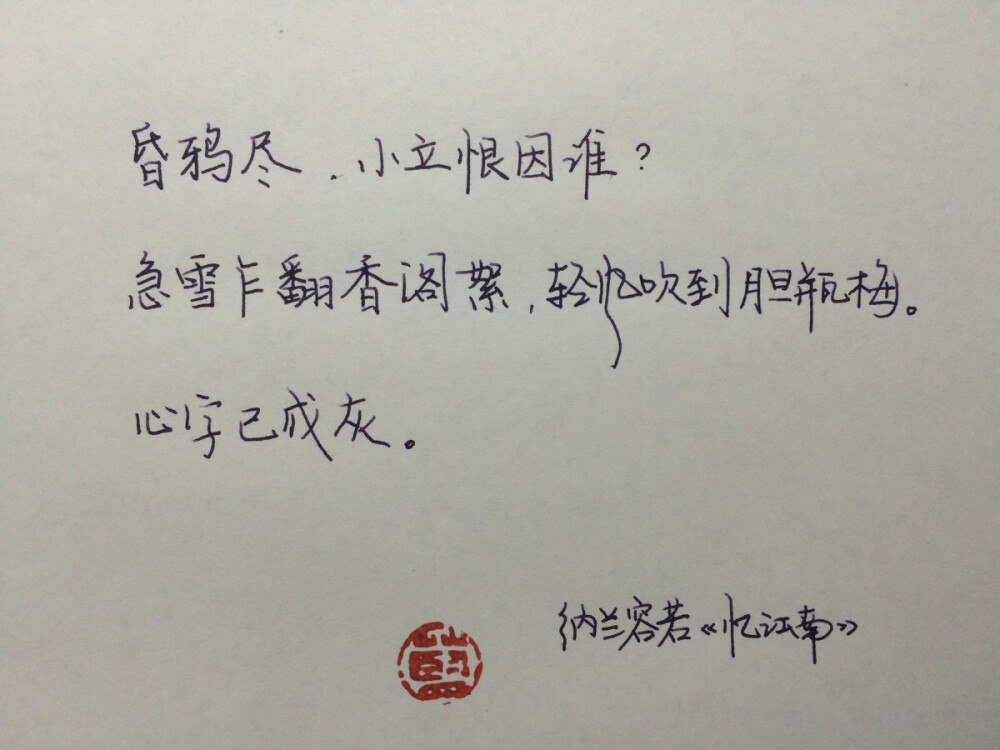 昏鸦尽.小立恨因谁?
急雪乍翻香阁絮,轻风吹到胆瓶梅。
心字已成灰。
纳兰容若《忆江南》